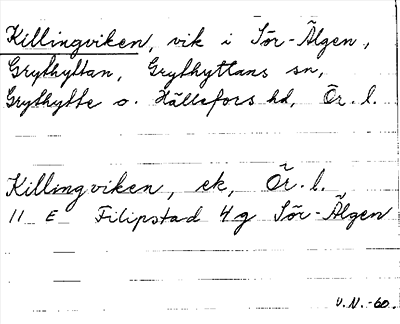 Killingviken, vik i Sör-Älgen,
Grythyttan, Grythyttans sn,
Grythytte o. Hällefors hd, Ör. l.
Killingviken, ek, Ör. l.
11 E Filipstad 4g Sör-Älgen
V.N.-60.